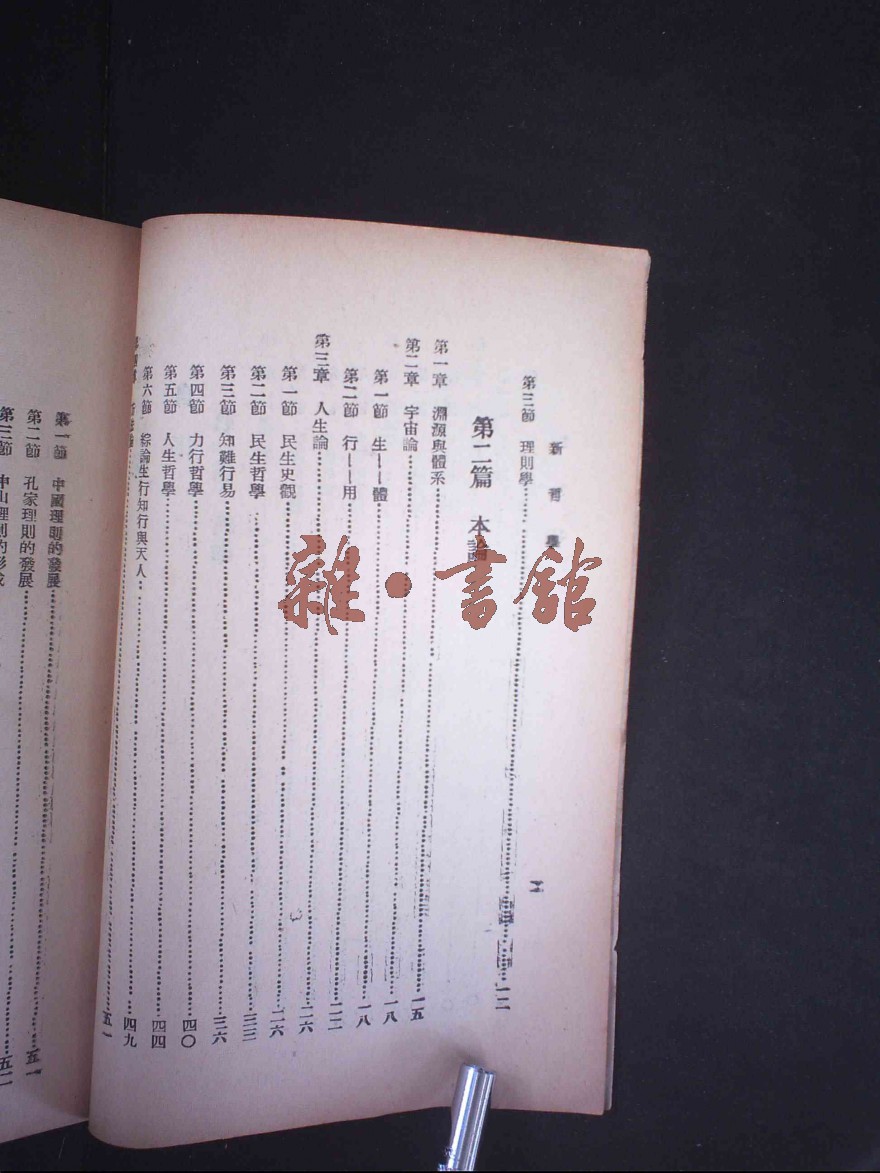 新哲學
第三節 理則學……一二
第二篇 本論
第一章 淵源與體系……一五
第二章 宇宙論……一八
第一節 生——體……一八
第二節 行——用……二二
第三章 人生論……二六
第一節 民生史觀……二六
第二節 民生哲學……三三
第三節 知難行易……三六
第四節 力行哲學……四〇
第五節 人生哲學……四四
第六節 綜論生行知行與天人……四九
……五一
第一節 中國理則的發展……五一
第二節 孔家理則的發展……五二
第三節 中山理則的形成
雜·書館